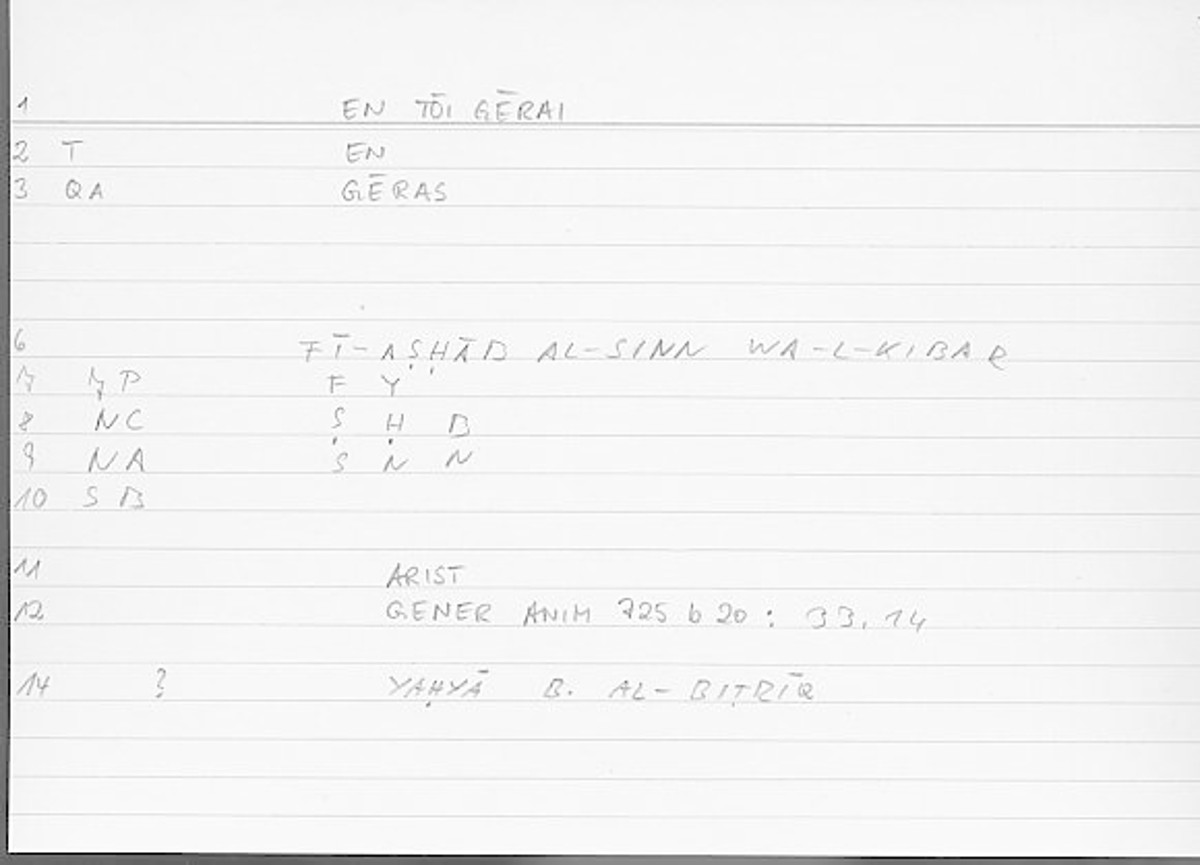 1 EN TŌI GĒRAI
2 T EN
3 QA GĒRAS
6 FĪ-AṢḤĀB AL-SINN WA-L-KIBAR
7 P F Y
8 NC Ṣ Ḥ B
9 NA S N N
10 SB
11 ARIST
12 GENER ANIM 725 b 20 : 33,14
14 ? YAḤYĀ B. AL-BIṬRĪQ